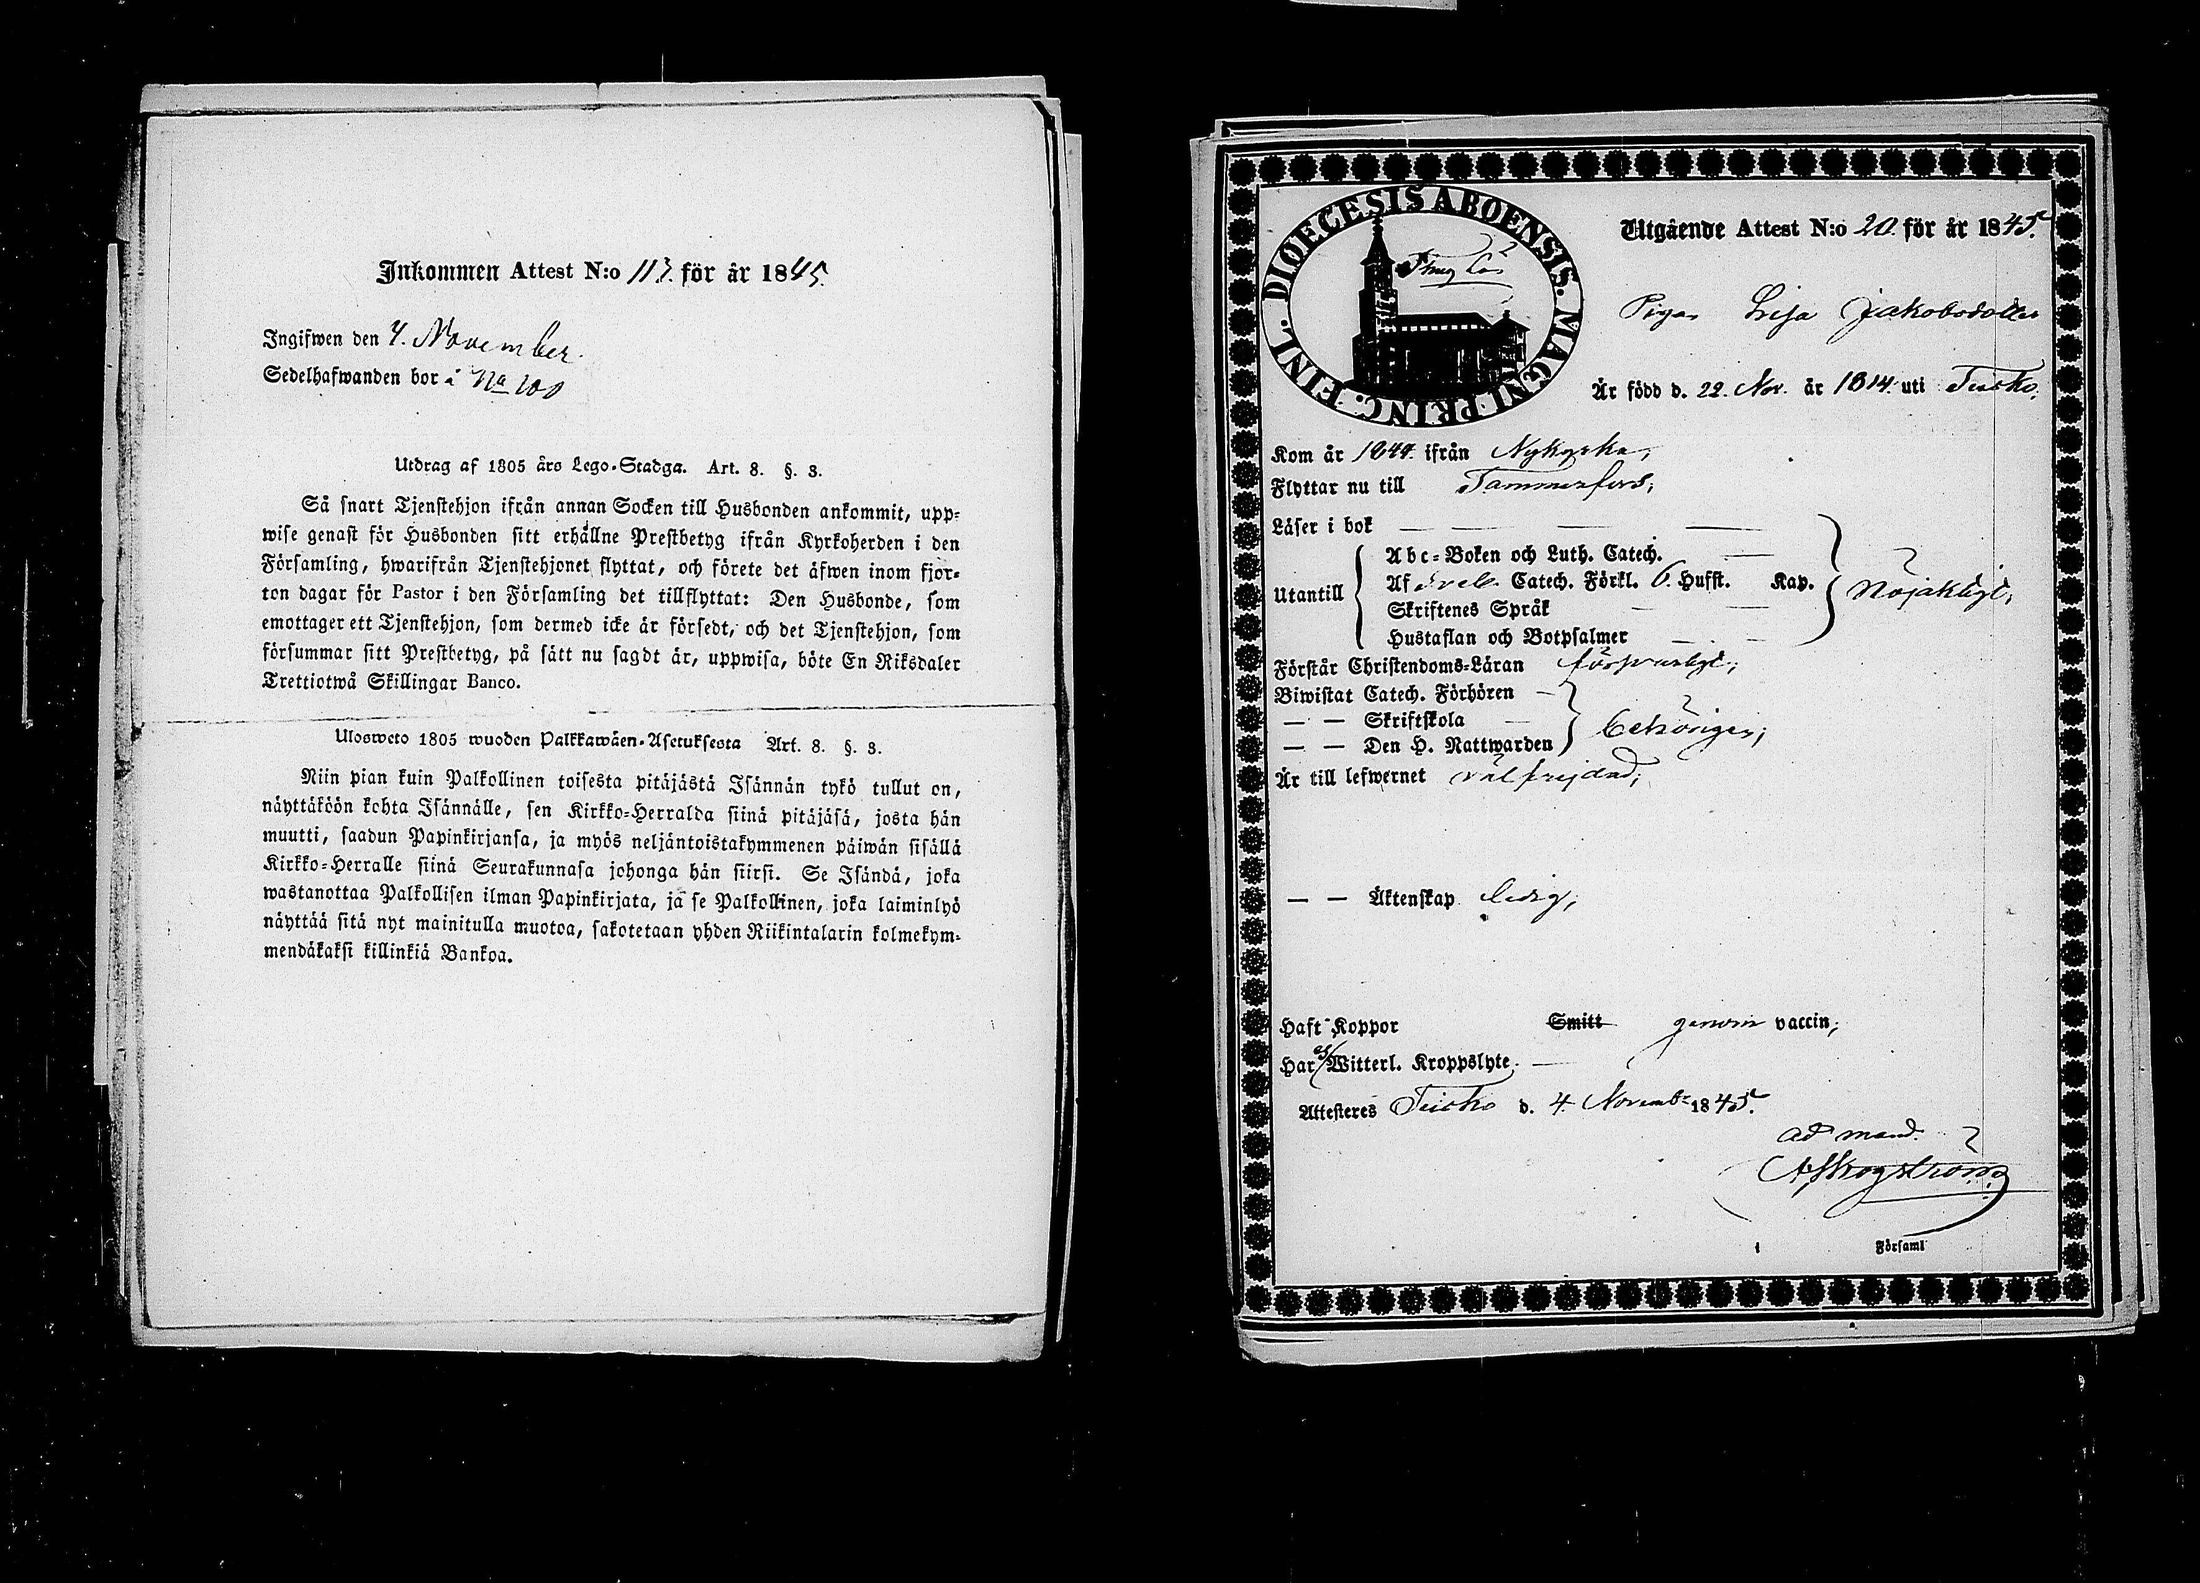 Inkommen Attest N:o 113. för år 1845.
Ingifwen den 4. November.
Sedelhafwanden bor å No 100
Utdrag af 1805 års Lego-Stadga. Art. 8. §. 3.
Så snart Tjenstehjon ifrån annan Socken till Husbonden ankommit, upp-
wise genast för Husbonden sitt erhållne Prestbetyg ifrån Kyrkoherden i den
Församling, hwarifrån Tjenstehjonet flyttat, och förete det äfwen inom fjor-
ton dagar för Pastor i den Församling det tillflyttat: Den Husbonde, som
emottager ett Tjenstehjon, som dermed icke är försedt, och det Tjenstehjon, som
försummar sitt Prestbetyg, på sätt nu sagdt är, uppwisa, böte En Riksdaler
Trettiotwå Skillingar Banco.
Ulosweto 1805 wuoden Palkkawäen-Asetuksesta Art. 8. §. 3.
Niin pian kuin Palkollinen toisesta pitäjästä Isännän tykö tullut on,
näyttäköön kohta Isännälle, sen Kirkko-Herralda siinä pitäjäsä, josta hän
muutti, saadun Papinkirjansa, ja myös neljäntoistakymmenen päiwän sisällä
Kirkko-Herralle siinä Seurakunnasa johonga hän siirsi. Se Isändä, joka
wastanottaa Palkollisen ilman Papinkirjata, ja se Palkollinen, joka laiminlyö
näyttää sitä nyt mainitulla muotoa, sakotetaan yhden Riikintalarin kolmekym-
mendäkaksi killinkiä Bankoa.
DIOECESIS ABOENSIS. MAGNI PRINC. FINL.
Utgående Attest N:o 20. för år 1845.
Pigan Lisa Jakobsdotter
Är född d. 22. Nov. år 1814. uti Teisko;
Kom år 1844. ifrån Nykyrka;
Flyttar nu till Tammerfors;
Läser i bok
Utantill
Abc-Boken och Luth. Catech.
Af Catech. Förkl. 6. Hufst. Kap.
Skriftenes Språk
Hustaflan och Botpsalmer
Nöjaktigt;
Förstår Christendoms-Läran försvarligt;
Biwistat Catech. Förhören
— — Skriftskola
— — Den H. Nattwarden
behörigen;
Är till lefwernet välfrejdad;
— — Äktenskap ledig;
Haft Koppor Smitt genom vaccin;
Har ej Witterl. Kroppslyte.
Attesteres Teisko d. 4. Novemb. 1845.
ad mand.
A Skogström
Församl